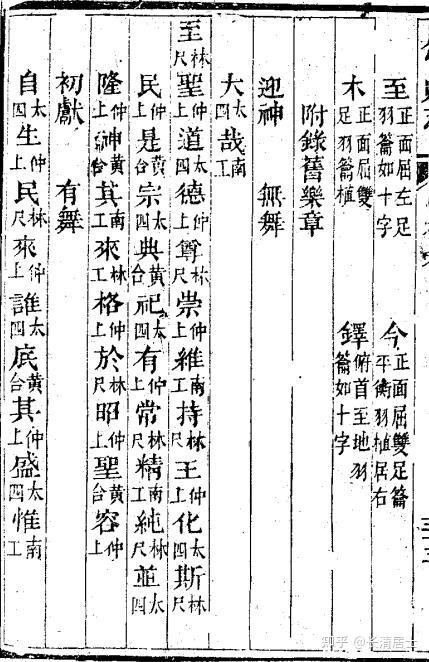 至正面屈左足羽籥如十字　今正面屈雙足籥平衡羽植居右
木正面屈雙足羽籥植　鐸俯首至地羽籥如十字
附錄舊樂章
迎神　無舞
大太四哉南工
至林尺聖仲上道太四德仲上尊林尺崇仲上維南工持林尺王仲上化太四斯林尺
民仲上是黃台宗太四典黃台祀太四有仲上常林尺精南工純林尺並太四
隆仲上神黃台其南工來林尺格仲上於林尺昭仲上聖黃台容仲上
初獻　有舞
自太四生仲上民林尺來仲上誰太四底黃台其仲上盛太四惟南工
知乎 @长清居士